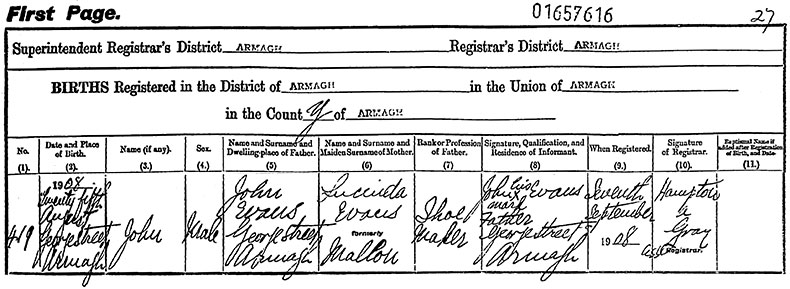 First Page. 01657616 27
Superintendent Registrar's District ARMAGH Registrar's District ARMAGH
BIRTHS Registered in the District of ARMAGH in the Union of ARMAGH
in the County of ARMAGH
No. (1).
Date and Place of Birth. (2).
Name (if any). (3.)
Sex. (4.)
Name and Surname and Dwelling-place of Father. (5)
Name and Surname and Maiden Surname of Mother. (6)
Rank or Profession of Father. (7)
Signature, Qualification, and Residence of Informant. (8)
When Registered. (9.)
Signature of Registrar. (10.)
Baptismal Name if added after Registration of Birth, and Date. (11.)
419
1908
Twenty fifth
August
George Street
Armagh
John
Male
John
Evans
George Street
Armagh
Lucinda
Evans
formerly
Mallon
Shoe
Maker
John his Evans
x
mark
Father
George Street
Armagh
Seventh
September
1908
Hampton
A
Gray
Asst Registrar.